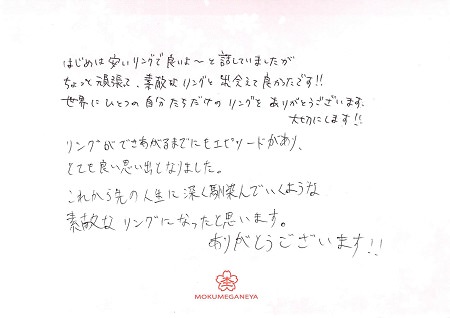 はじめは安いリングで良いよ～と話していましたが
ちょっと頑張って、素敵なリングと出会えて良かったです!!
世界にひとつの自分たちだけのリングをありがとうございます。
大切にします!!
リングができあがるまでにもエピソードがあり、
とても良い思い出となりました。
これから先の人生に深く馴染んでいくような
素敵なリングになったと思います。
ありがとうございます!!
MOKUMEGANEYA